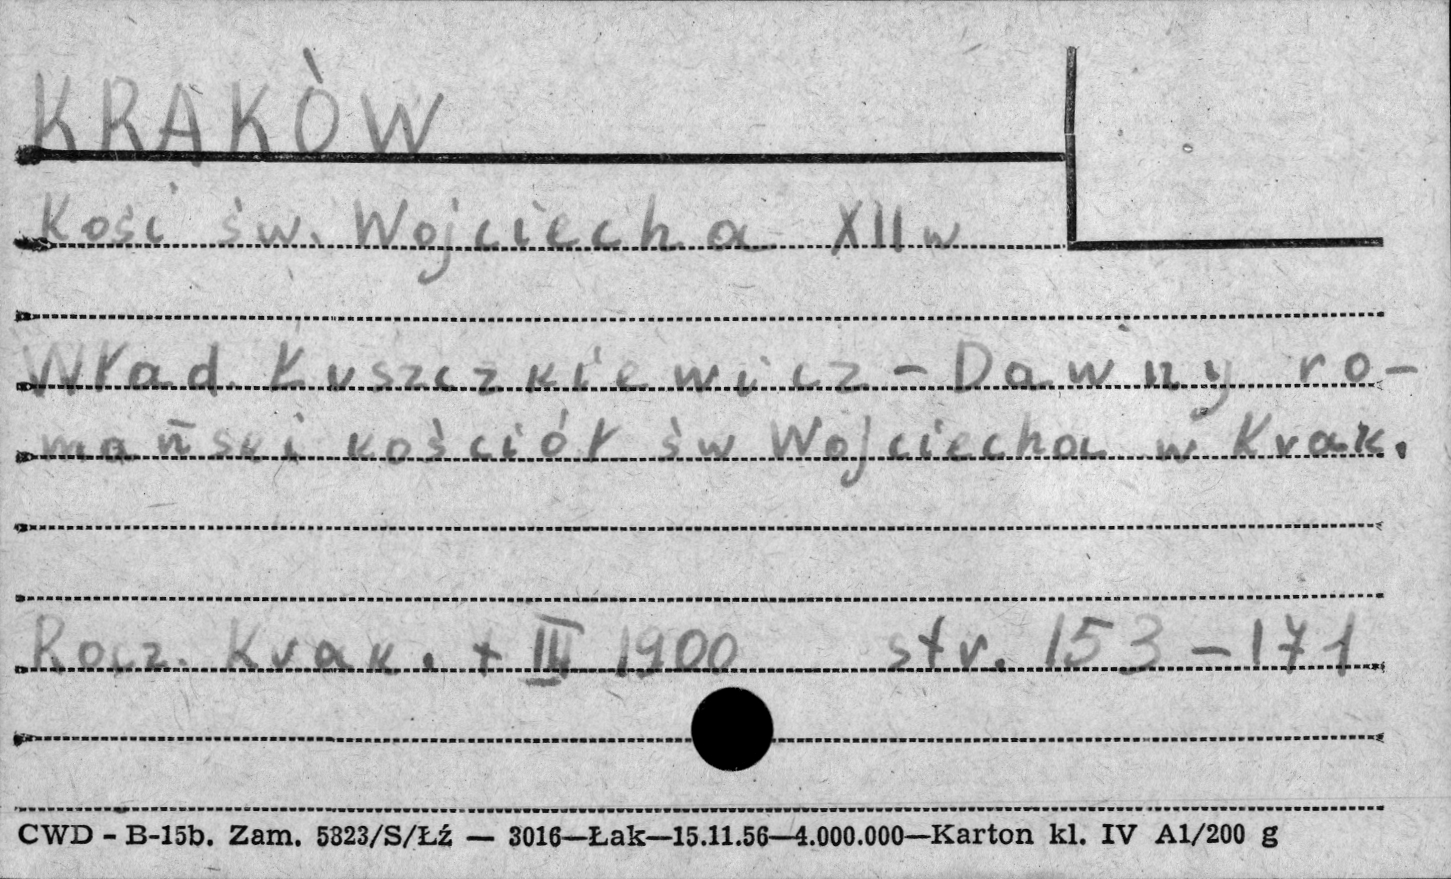 KRAKÒW
Kośc św. Wojciecha XII w
Wład. Łuszczkiewicz - Dawny ro-
mański kościół św Wojciecha w Krak.
Rocz. Krak. t III 1900 str. 153-171
CWD - B-15b. Zam. 5823/S/Łź — 3016—Łak—15.11.56—4.000.000—Karton kl. IV A1/200 g